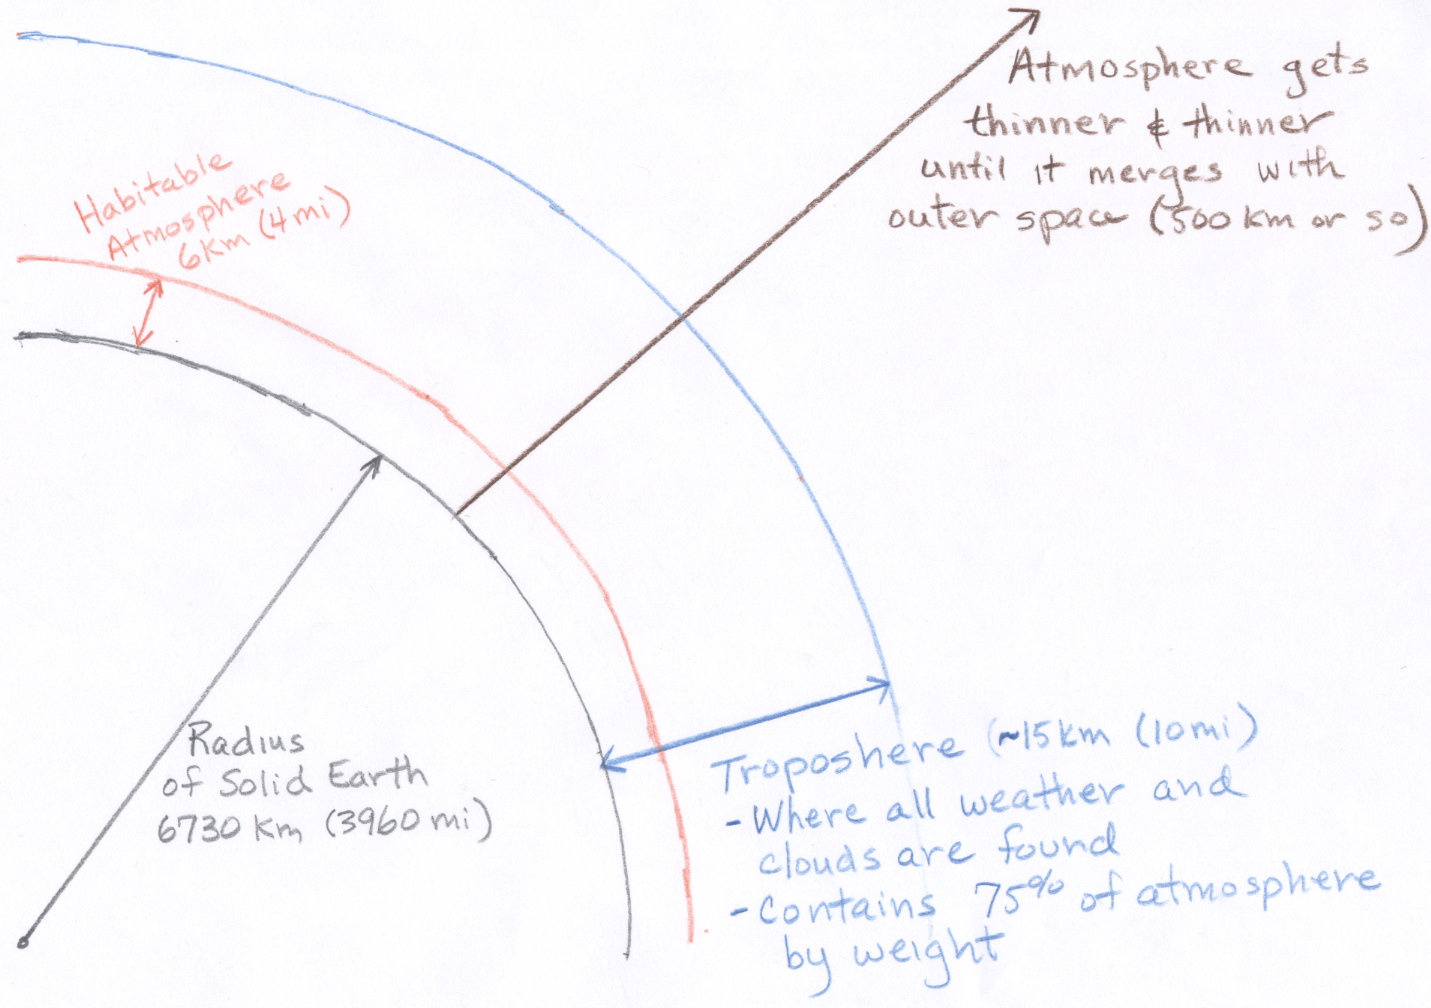 Atmosphere gets
thinner & thinner
until it merges with
outer space (500 km or so)
Habitable
Atmosphere
6 km (4 mi)
Radius
of Solid Earth
6730 km (3960 mi)
Troposhere (~15 km (10 mi)
- Where all weather and
clouds are found
- Contains 75% of atmosphere
by weight